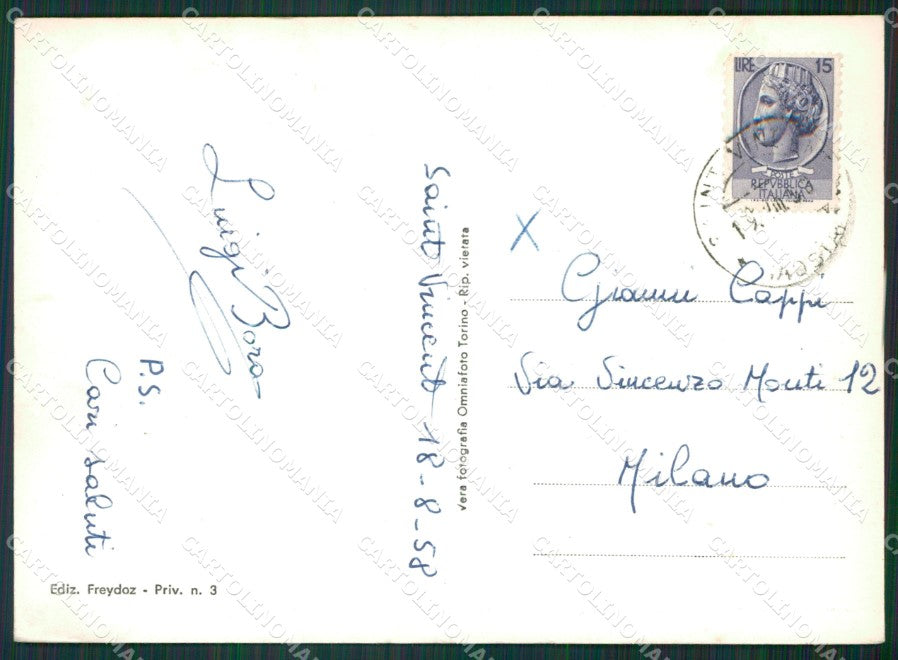 Saint Vincent 18-8-58
Luigi Bora
P.S.
Cari saluti
Ediz. Freydoz - Priv. n. 3
vera fotografia Omniafoto Torino - Rip. vietata
LIRE 15
POSTE
REPVBBLICA
ITALIANA
X
Gianni Cappi
Via Vincenzo Monti 12
Milano
CARTOLINOMANIA